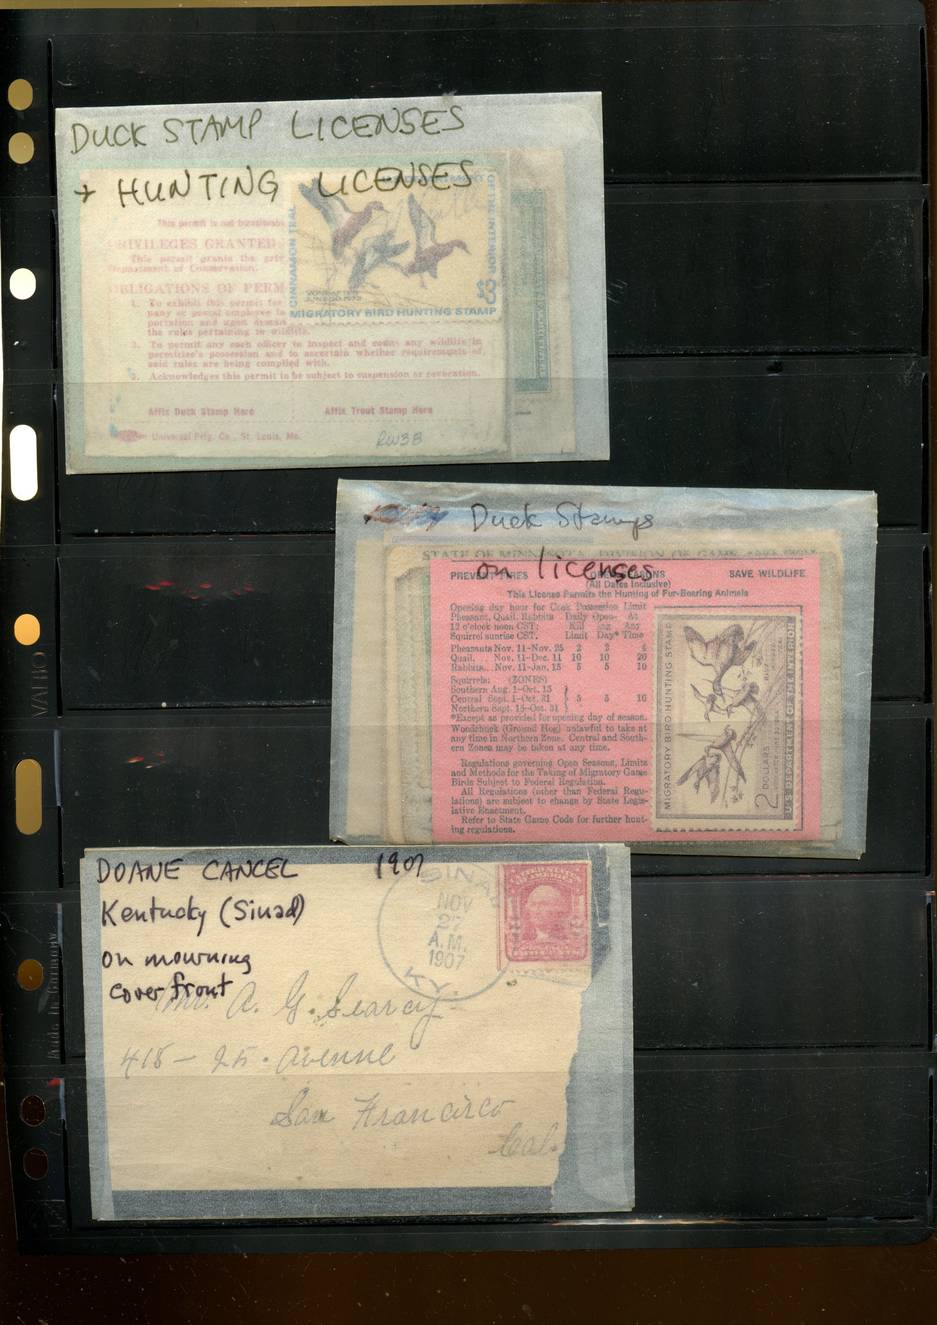 DUCK STAMP LICENSES
+ HUNTING LICENSES
This permit is not transferable
PRIVILEGES GRANTED
This permit grants the
Department of Conservation.
OBLIGATIONS OF PERM
1. To exhibit this permit for
pany or postal employee in
portation and upon
the rules pertaining to wildlife.
2. To permit any such officer to inspect and count any wildlife in
permittee's possession and to ascertain whether requirements of
said rules are being complied with.
3. Acknowledges this permit to be subject to suspension or revocation.
Affix Duck Stamp Here Affix Trout Stamp Here
Universal Prtg. Co., St. Louis, Mo.
RW38
CINNAMON TEAL
OF THE INTERIOR
VOID AFTER
JUNE 30, 1972
$3
MIGRATORY BIRD HUNTING STAMP
Duck Stamps
on licenses
STATE OF MINNESOTA, DIVISION OF GAME AND FISH
PREVENT FIRES OPEN SEASONS SAVE WILDLIFE
(All Dates Inclusive)
This License Permits the Hunting of Fur-Bearing Animals
Opening day hour for Cock Possession Limit
Pheasant, Quail, Rabbits Daily Open- At
12 o'clock noon CST; Kill ing Any
Squirrel sunrise CST. Limit Day* Time
Pheasants Nov. 11-Nov. 25 2 2 4
Quail. . . Nov. 11-Dec. 11 10 10 20
Rabbits. . . Nov. 11-Jan. 15 5 5 10
Squirrels: (ZONES)
Southern Aug. 1-Oct. 15
Central Sept. 1-Oct. 31 5 5 10
Northern Sept. 15-Oct. 31
*Except as provided for opening day of season.
Woodchuck (Ground Hog) unlawful to take at
any time in Northern Zone. Central and South-
ern Zones may be taken at any time.
Regulations governing Open Seasons, Limits
and Methods for the Taking of Migratory Game
Birds Subject to Federal Regulation.
All Regulations (other than Federal Regu-
lations) are subject to change by State Legis-
lative Enactment.
Refer to State Game Code for further hunt-
ing regulations.
MIGRATORY BIRD HUNTING STAMP
2 DOLLARS
U.S. DEPARTMENT OF THE INTERIOR
DOANE CANCEL 1907
Kentucky (Sinad)
on mourning
cover front
SINA
NOV
27
A.M.
1907
KY.
UNITED STATES
OF AMERICA
Mr. A. G. Searcy
418 - 25. Avenue
San Francisco
Cal.
VARIO
Made in Germany